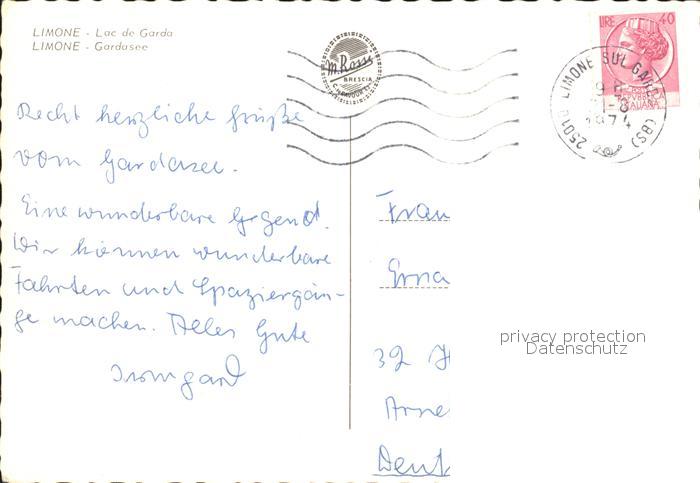 LIMONE - Lac de Garda
LIMONE - Gardasee
M. Rossi
BRESCIA
LIRE 40
25010 LIMONE SUL GARDA (BS)
1974
Recht herzliche Grüße
vom Gardasee.
Eine wunderbare Gegend.
Wir können wunderbare
Fahrten und Spaziergän-
ge machen. Alles Gute
Irmgard
Frau
Erna
32 H
Arne
Deut
privacy protection
Datenschutz